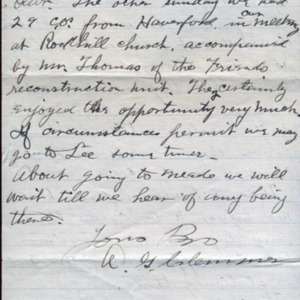 The other sunday we had
29 COs from Haverford in our meeting
at Rockhill church. accompanied
by Mr. Thomas of the Friends
reconstruction unit. They certainly
enjoyed the opportunity very much.
If circumstances permit we may
go to Lee some time.
About going to Meade we will
wait till we hear of any being
there.
Your Bro
A. G. Clemmer